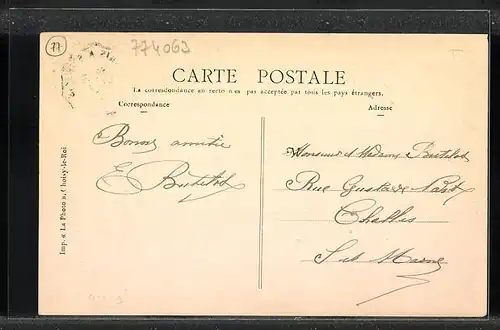 77
774063
CARTE POSTALE
La correspondance au recto n'est pas acceptée par tous les pays étrangers.
Correspondance
Adresse
Bonne amitié
E Butelot
Monsieur et Madame Butelot
Rue Gustave
Chelles
S et Marne
Imp. « La Photo », Choisy-le-Roi